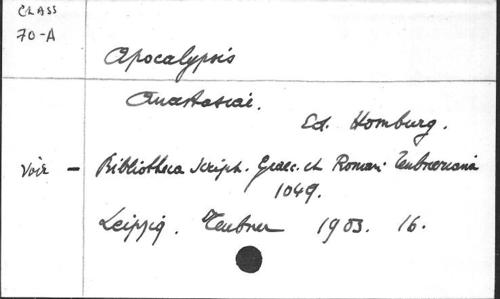 CLASS
70-A
Apocalypsis
Anastasiae.
Ed. Homburg.
Voir - Bibliotheca Script. Graec. et Roman. Teubneriana
1049.
Leipzig. Teubner 1903. 16.